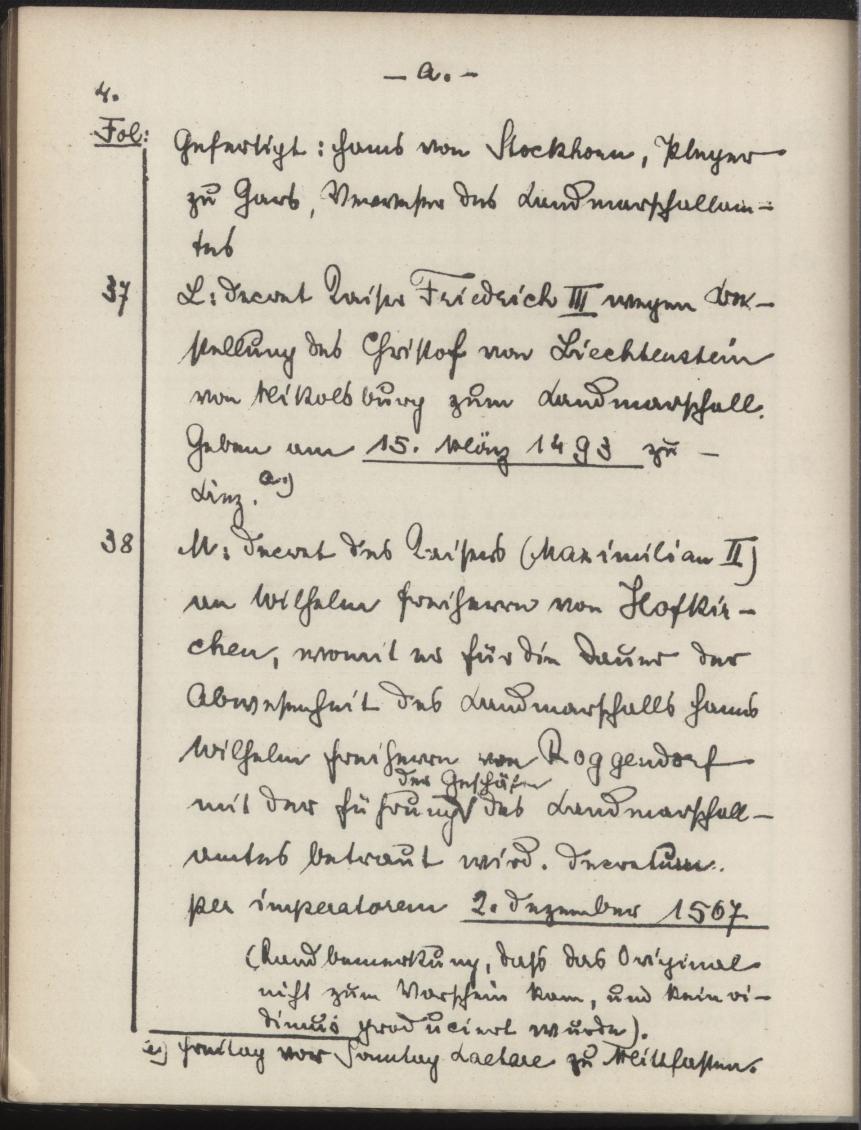 — a. —
4.
Fol: Gefertigt: Hans von Stockhorn, Pfleger
zu Gars, Verweser des Landmarschallam-
tes
37 L: Decret Kaiser Friedrich III wegen Be-
stellung des Christof von Liechtenstein
von Nikolsburg zum Landmarschall.
Geben am 15. März 1493 zu —
Linz. a.)
38 M: Decret des Kaisers (Maximilian II)
an Wilhelm Freiherrn von Hofkir-
chen, womit er für die Dauer der
Abwesenheit des Landmarschalls Hans
Wilhelm Freiherrn von Roggendorf
der Geschäfte
mit der Führung des Landmarschall-
amtes betraut wird. Decretum.
per imperatorem 2. Dezember 1567
(Randbemerkung, daß das Original
nicht zum Vorschein kam, und kein vi-
dimus produciert wurde).
a) Freitag vor Sonntag Laetare zu Mittfasten.